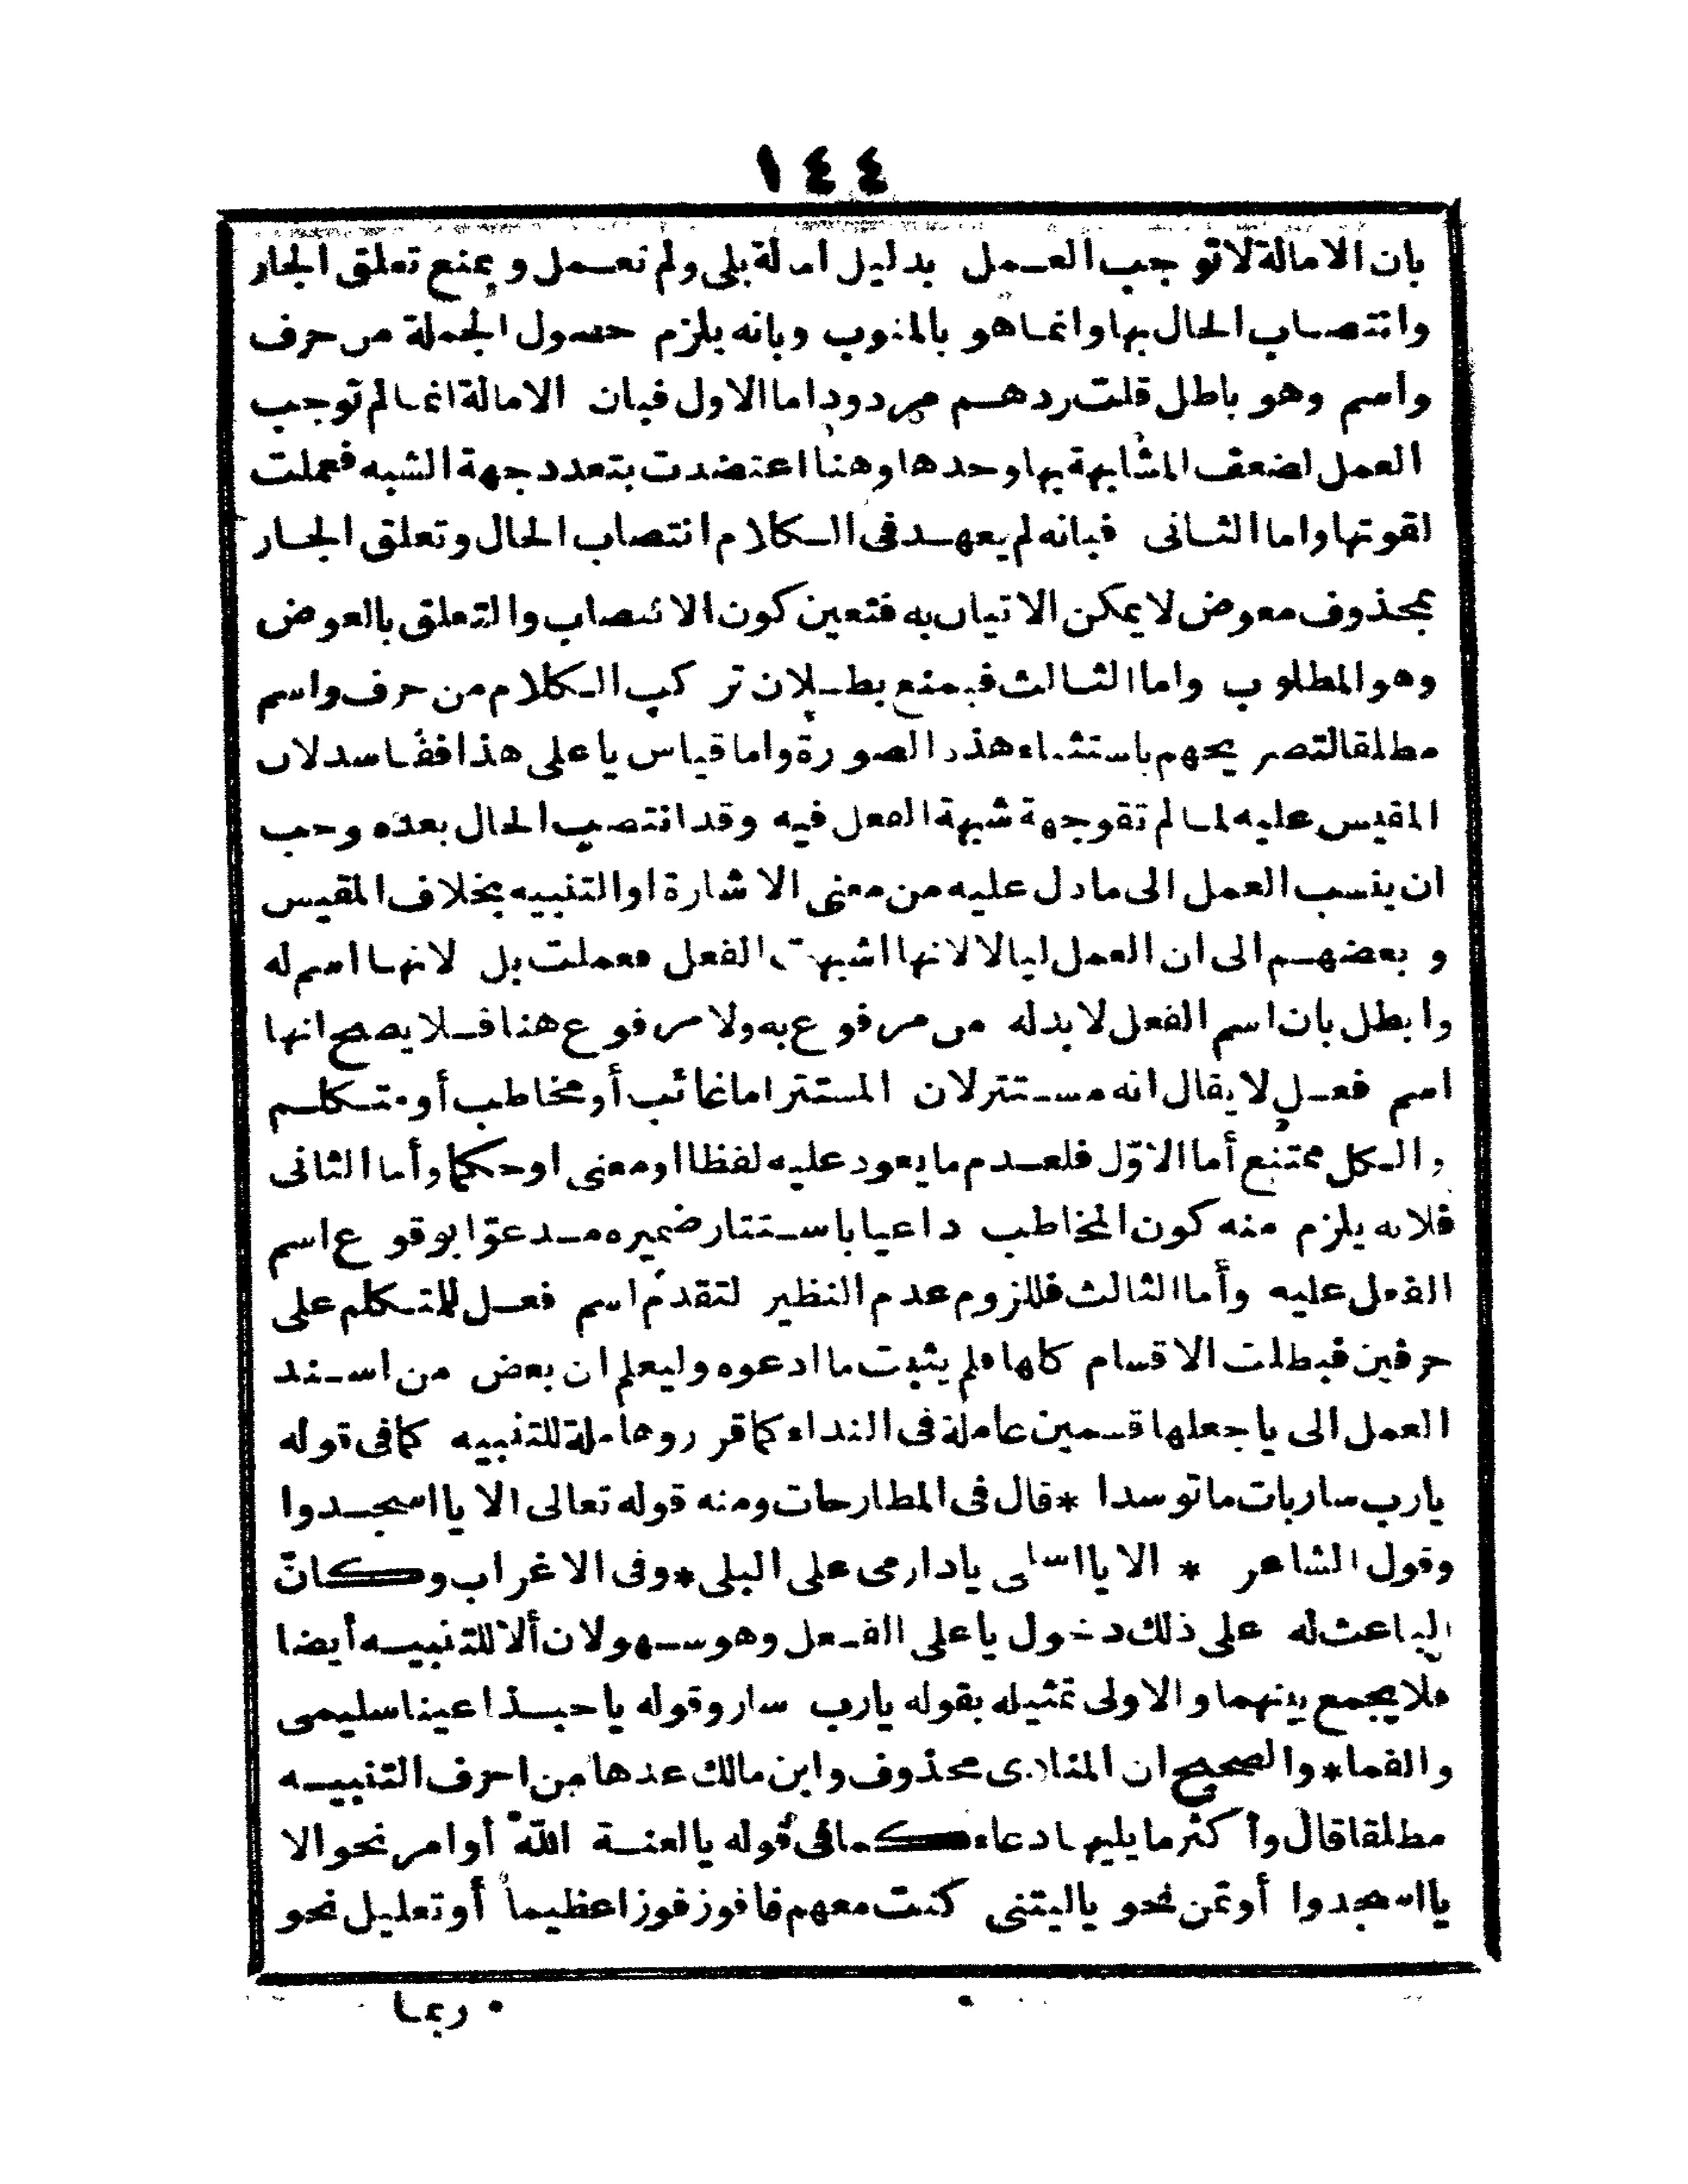 ١٤٤
بان الامالة لا توجب العمل بدليل امالة بلى ولم تعمل و يمنع تعلق الجار
وانتصاب الحال بها وانما هو بالمنوب وبانه يلزم حصول الجملة من حرف
واسم وهو باطل قلت ردهم مردود اما الاول فبان الامالة انما لم توجب
العمل لضعف المشابهة بها وحدها وهنا اعتضدت بتعدد جهة الشبه فعملت
لقوتها واما الثانى فبانه لم يعهد فى الكلام انتصاب الحال وتعلق الجار
بمحذوف معوض لا يمكن الاتيان به فتعين كون الانتصاب والتعلق بالعوض
وهو المطلوب واما الثالث فبمنع بطلان تركب الكلام من حرف واسم
مطلقا لتصريحهم باستثناء هذه الصورة واما قياس يا على هذا ففاسد لان
المقيس عليه لما لم تقو جهة شبهة الفعل فيه وقد انتصب الحال بعده وجب
ان ينسب العمل الى ما دل عليه من معنى الاشارة او التنبيه بخلاف المقيس
و بعضهم الى ان العمل ليا لا لانها اشبهت الفعل فعملت بل لانها اسم له
وابطل بان اسم الفعل لا بد له من مرفوع به ولا مرفوع هنا فلا يصح انها
اسم فعل لا يقال انه مستتر لان المستتر اما غائب أو مخاطب أو متكلم
والكل ممتنع أما الاوّل فلعدم ما يعود عليه لفظا او معنى او حكما وأما الثانى
فلانه يلزم منه كون المخاطب داعيا باستتار ضميره مدعوّا بوقوع اسم
الفعل عليه وأما الثالث فللزوم عدم النظير لتقدم اسم فعل للمتكلم على
حرفين فبطلت الاقسام كلها فلم يثبت ما ادعوه وليعلم ان بعض من اسند
العمل الى يا جعلها قسمين عاملة فى النداء كما قرر وهاملة للتنبيه كما فى قوله
يا رب سار بات ما توسدا * قال فى المطارحات ومنه قوله تعالى الا يا اسجدوا
وقول الشاعر * الا يا اسلمى يا دار مى على البلى * وفى الاغراب وكانّ
الباعث له على ذلك دخول يا على الفعل وهو سهو لان ألا للتنبيه أيضا
فلا يجمع بينهما والاولى تمثيله بقوله يا رب سار وقوله يا حبذا عينا سليمى
والفما * والصحيح ان المنادى محذوف وابن مالك عدها من احرف التنبيه
مطلقا قال وأكثر ما يليها دعاء كما فى قوله يا لعنة الله أو امر نحو الا
يا اسجدوا أو تمن نحو يا ليتنى كنت معهم فافوز فوزا عظيما أو تعليل نحو
ربما